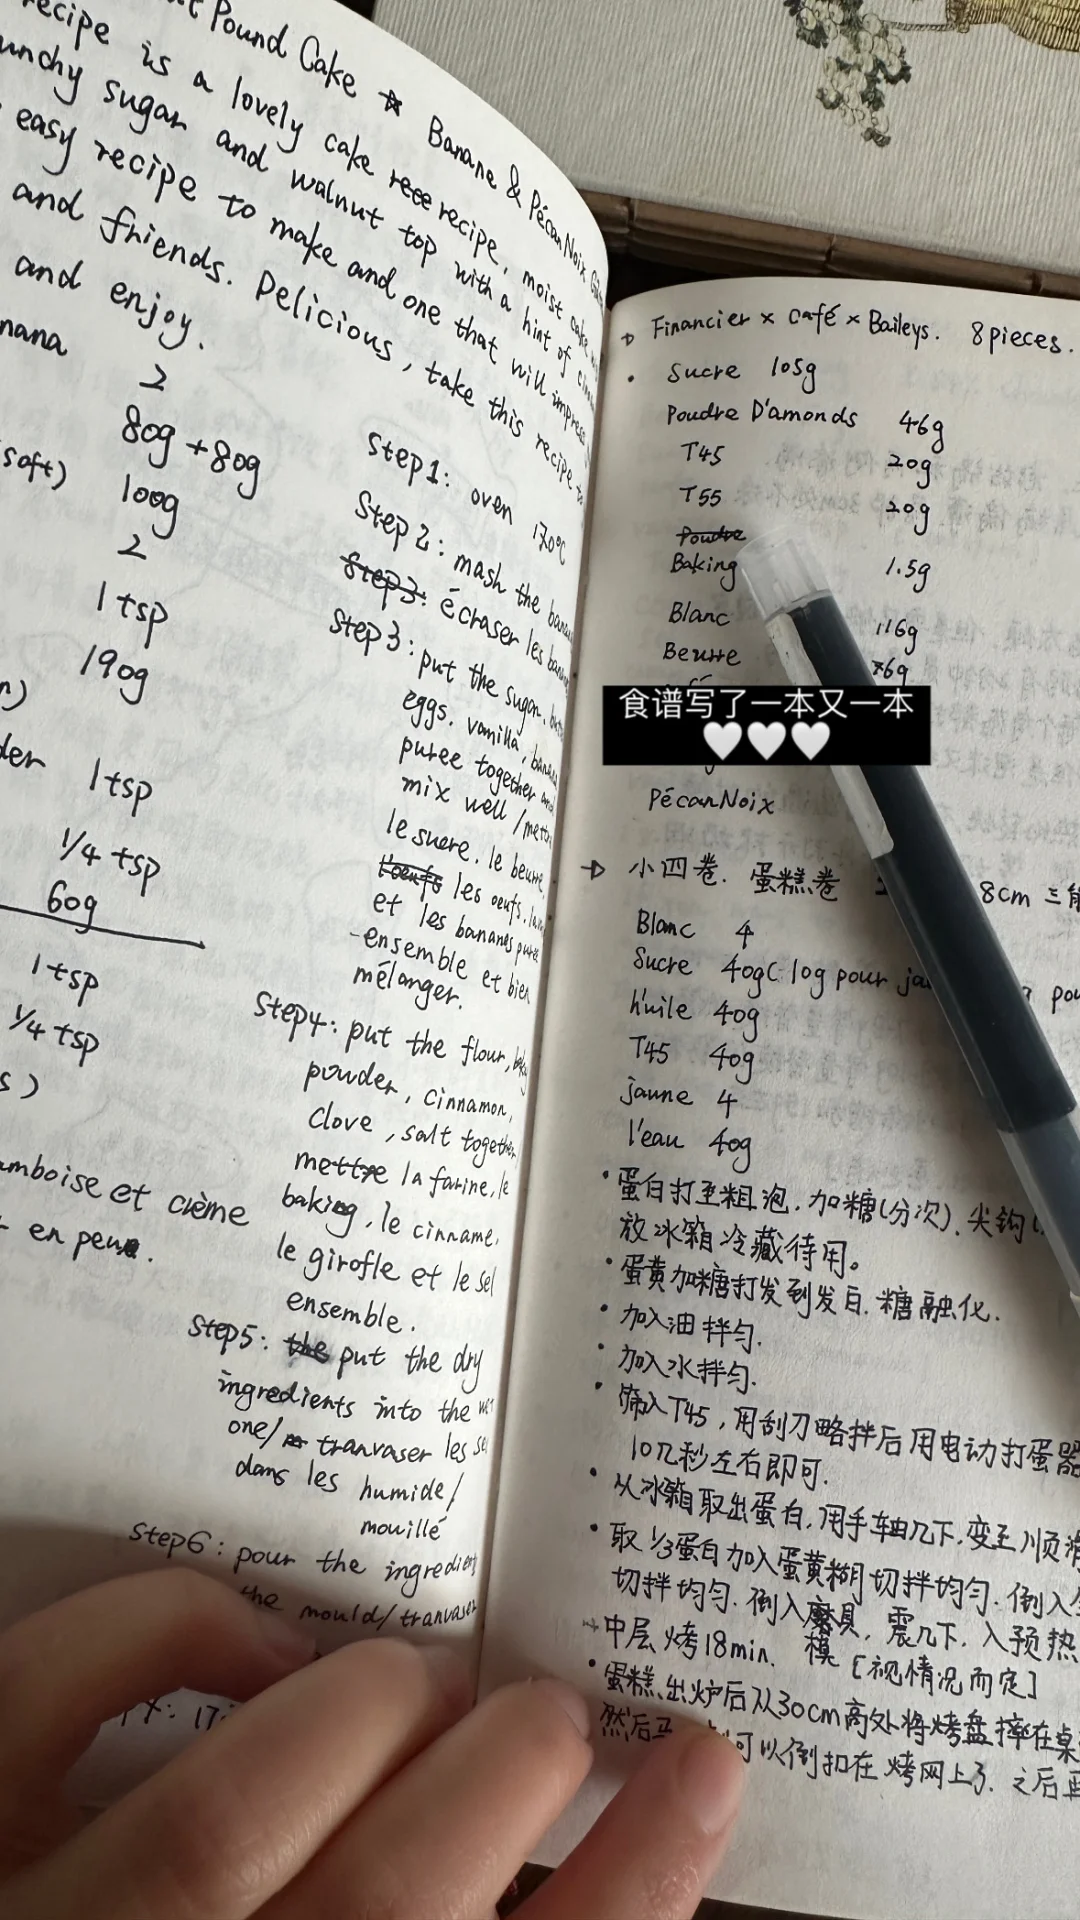 Pound Cake ☆ Banane & Pécan Noix
recipe is a lovely cake rece recipe, moist cake
crunchy sugar and walnut top with a hint of
easy recipe to make and one that will impress
and friends. Delicious, take this recipe to
and enjoy.
2
80g + 80g
soft) 100g
2
1 tsp
190g
1 tsp
1/4 tsp
60g
1 tsp
1/4 tsp
et crème
en peux.
Step 1: oven 170°C
Step 2: mash the
Step3: écraser les
Step 3: put the sugar,
eggs. vanilla,
puree together and
mix well /
le sucre. le beurre
l'oeufs les oeufs.
et les bananes puree
ensemble et bien
mélanger.
Step4: put the flour,
powder, cinnamon,
clove, salt together
mettre la farine, le
baking, le cinname,
le girofle et le sel
ensemble.
Step5: the put the dry
ingredients into the
one/ tranvaser les
dans les humide/
mouillé
Step6: pour the
the mould/ tranvaser
Financier × café × Baileys. 8 pieces.
Sucre 105g
Poudre D'amonds 46g
T45 20g
T55 20g
Poudre
Baking 1.5g
Blanc 116g
Beurre 76g
食谱写了一本又一本
🤍🤍🤍
Pécan Noix
小四卷. 蛋糕卷 8cm 三能
Blanc 4
Sucre 40g( 10g pour
h'uile 40g
T45 40g
jaune 4
l'eau 40g
• 蛋白打至粗泡. 加糖(分次). 尖钩
放冰箱冷藏待用。
• 蛋黄加糖打发到发白. 糖融化.
• 加入油拌匀.
• 加入水拌匀.
• 筛入T45, 用刮刀略拌后用电动打蛋器
10几秒左右即可.
• 从冰箱取出蛋白, 用手轴几下, 变至顺滑
• 取1/3蛋白加入蛋黄糊切拌均匀. 倒入
切拌均匀. 倒入磨具, 震几下. 入预热
模
中层烤18min. [视情况而定]
• 蛋糕出炉后从30cm高处将烤盘摔在桌
然后 可以倒扣在烤网上了. 之后